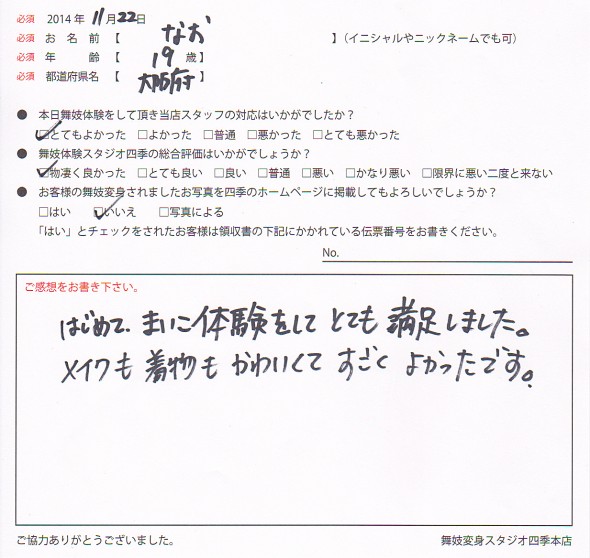 必須 2014年 11月22日
必須 お名前【 なお 】(イニシャルやニックネームでも可)
必須 年齢【 19 歳】
必須 都道府県名【 大阪府 】
● 本日舞妓体験をして頂き当店スタッフの対応はいかがでしたか?
☑とてもよかった □よかった □普通 □悪かった □とても悪かった
● 舞妓体験スタジオ四季の総合評価はいかがでしょうか?
☑物凄く良かった □とても良い □良い □普通 □悪い □かなり悪い □限界に悪い二度と来ない
● お客様の舞妓変身されましたお写真を四季のホームページに掲載してもよろしいでしょうか?
□はい ☑いいえ □写真による
「はい」とチェックをされたお客様は領収書の下記にかかれている伝票番号をお書きください。
No.
ご感想をお書き下さい。
はじめて、まいこ体験をして とても 満足しました。
メイクも 着物も かわいくて すごく よかったです。
ご協力ありがとうございました。 舞妓変身スタジオ四季本店